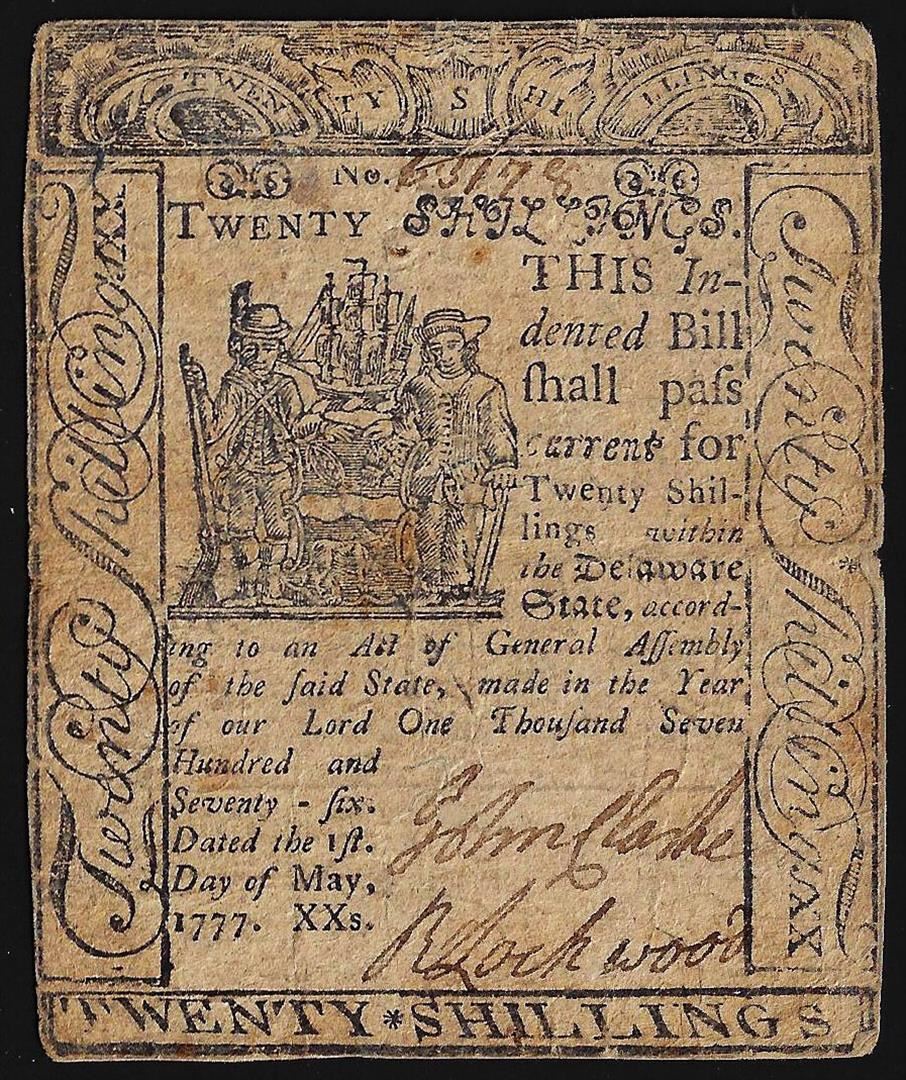 TWENTY SHILLINGS
No. 65178
TWENTY SHILLINGS.
THIS In-
dented Bill
ſhall paſs
current for
Twenty Shil-
lings within
the Delaware
State, accord-
ing to an Act of General Aſſembly
of the ſaid State, made in the Year
of our Lord One Thouſand Seven
Hundred and
Seventy - ſix.
Dated the 1ſt.
Day of May,
1777. XXs.
John Clarke
R Lockwood
Twenty ſhillingsXX
Twenty ſhillingsXX
TWENTY*SHILLINGS